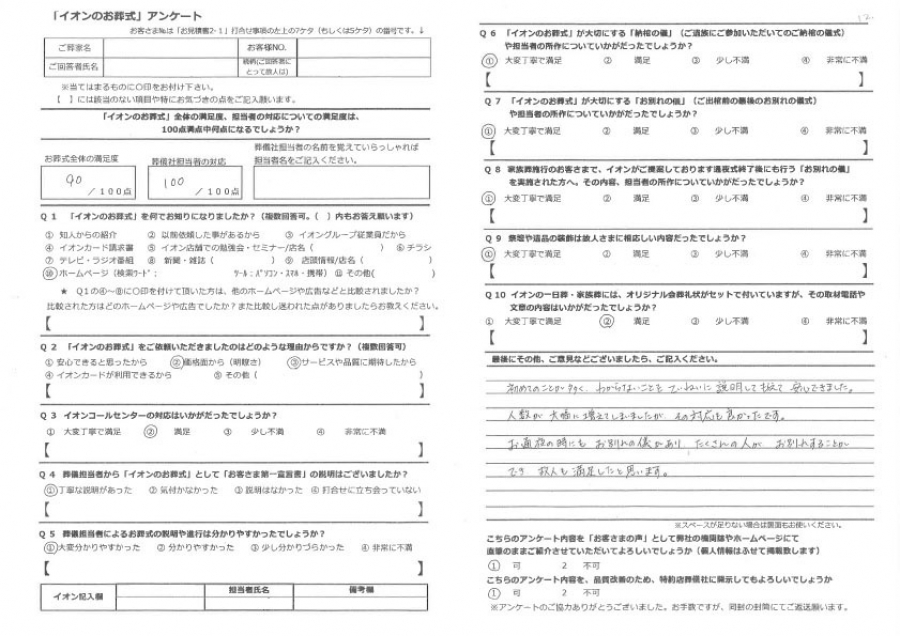 「イオンのお葬式」アンケート
お客さま№は「お見積書2-1」打合せ事項の左上の7ケタ（もしくは5ケタ）の番号です。↓
ご葬家名
お客様NO.
ご回答者氏名
続柄(ご回答者にとって故人は)
※当てはまるものに○印をお付け下さい。
【　】には該当のない項目や特にお気づきの点をご記入願います。
「イオンのお葬式」全体の満足度、担当者の対応についての満足度は、
100点満点中何点になるでしょうか？
お葬式全体の満足度
葬儀社担当者の対応
葬儀社担当者の名前を覚えていらっしゃれば
担当者名をご記入ください。
90 ／100点
100 ／100点
Q1 「イオンのお葬式」を何でお知りになりましたか？（複数回答可。（ ）内もお答え願います）
① 知人からの紹介 ② 以前依頼した事があるから ③ イオングループ従業員だから
④ イオンカード請求書 ⑤ イオン店舗での勉強会・セミナー/店名（ ） ⑥ チラシ
⑦ テレビ・ラジオ番組 ⑧ 新聞・雑誌（ ） ⑨ 店頭情報/店名（ ）
⑩ ホームページ（検索ﾜｰﾄﾞ： ﾂｰﾙ：ﾊﾟｿｺﾝ・ｽﾏﾎ・携帯） ⑪ その他（ ）
★ Q1の④～⑧に○印を付けて頂いた方は、他のホームページや広告などと比較されましたか？
比較された方はどのホームページや広告でしたか？また比較し迷われた点がありましたらお教えください。
【 】
Q2 「イオンのお葬式」をご依頼いただきましたのはどのような理由からですか？（複数回答可）
① 安心できると思ったから ② 価格面から（明瞭さ） ③ サービスや品質に期待したから
④ イオンカードが利用できるから ⑤ その他（ ）
【 】
Q3 イオンコールセンターの対応はいかがだったでしょうか？
① 大変丁寧で満足 ② 満足 ③ 少し不満 ④ 非常に不満
【 】
Q4 葬儀担当者から「イオンのお葬式」として「お客さま第一宣言書」の説明はございましたか？
① 丁寧な説明があった ② 気付かなかった ③ 説明はなかった ④ 打合せに立ち会っていない
【 】
Q5 葬儀担当者によるお葬式の説明や進行は分かりやすかったでしょうか？
① 大変分かりやすかった ② 分かりやすかった ③ 少し分かりづらかった ④ 非常に不満
【 】
イオン記入欄 担当者氏名 備考欄
12.
Q6 「イオンのお葬式」が大切にする「納棺の儀」（ご遺族にご参加いただいてのご納棺の儀式）
や担当者の所作についていかがだったでしょうか？
① 大変丁寧で満足 ② 満足 ③ 少し不満 ④ 非常に不満
【 】
Q7 「イオンのお葬式」が大切にする「お別れの儀」（ご出棺前の最後のお別れの儀式）
や担当者の所作についていかがだったでしょうか？
① 大変丁寧で満足 ② 満足 ③ 少し不満 ④ 非常に不満
【 】
Q8 家族葬施行のお客さまで、イオンがご提案しております通夜式終了後にも行う「お別れの儀」
を実施された方へ。その内容、担当者の所作についていかがだったでしょうか？
① 大変丁寧で満足 ② 満足 ③ 少し不満 ④ 非常に不満
【 】
Q9 祭壇や遺品の装飾は故人さまに相応しい内容だったでしょうか？
① 大変丁寧で満足 ② 満足 ③ 少し不満 ④ 非常に不満
【 】
Q10 イオンの一日葬・家族葬には、オリジナル会葬礼状がセットで付いていますが、その取材電話や
文章の内容はいかがだったでしょうか？
① 大変丁寧で満足 ② 満足 ③ 少し不満 ④ 非常に不満
【 】
最後にその他、ご意見などございましたら、ご記入ください。
初めてのことが多く、わからないことをていねいに説明して頂て安心できました。
人数が大幅に増えてしまいましたが、その対応も良かったです。
お通夜の時にもお別れの儀があり、たくさんの人がお別れすることが
でき 故人も満足したと思います。
※スペースが足りない場合は裏面もお使いください。
こちらのアンケート内容を「お客さまの声」として弊社の機関誌やホームページにて
直筆のままご紹介させていただいてよろしいでしょうか（個人情報はふせて掲載致します）
1 可 2 不可
こちらのアンケート内容を、品質改善のため、特約店葬儀社に開示してもよろしいでしょうか
1 可 2 不可
※アンケートのご協力ありがとうございました。お手数ですが、同封の封筒にてご返送願います。